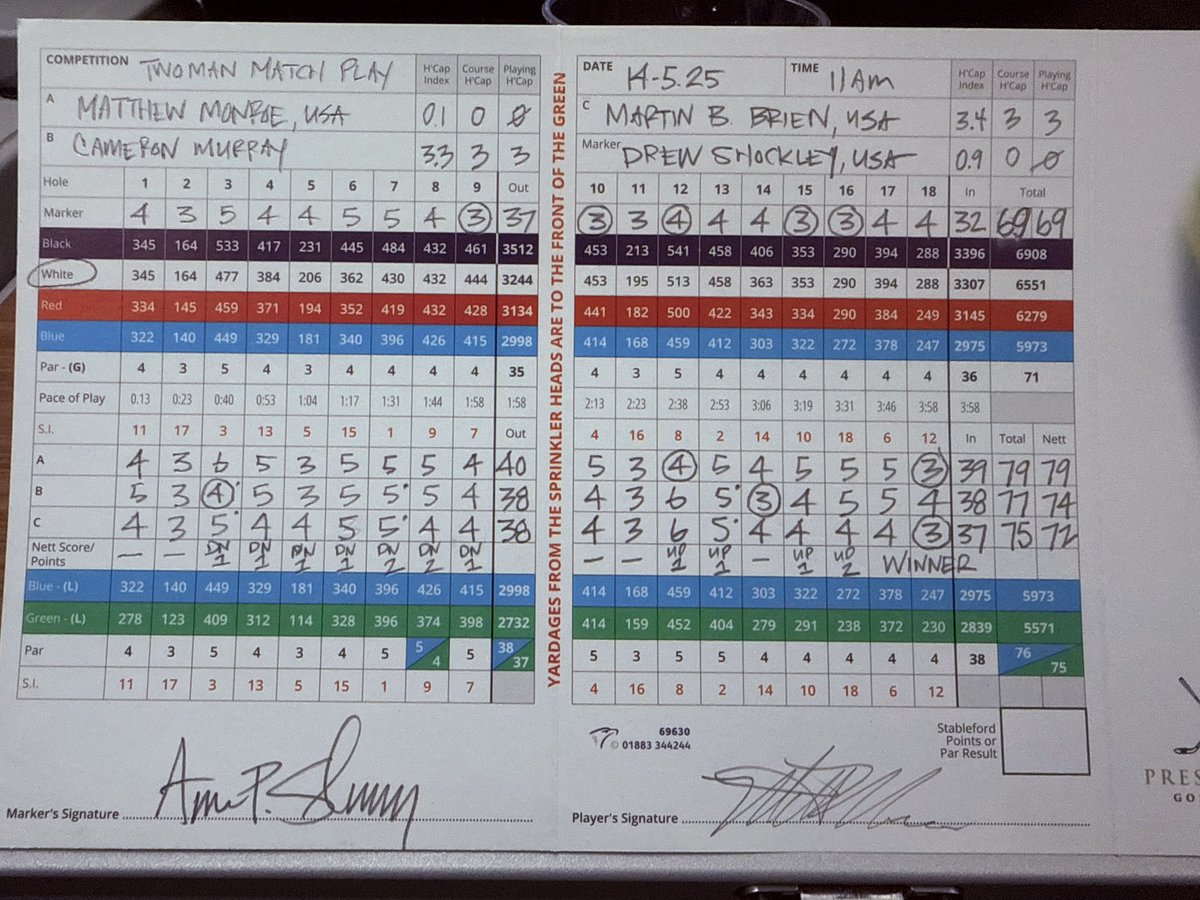 COMPETITION TWOMAN MATCH PLAY H'Cap Index Course H'Cap Playing H'Cap
A MATTHEW MONROE, USA 0.1 0 0
B CAMERON MURRAY 3.3 3 3
DATE 14-5.25 TIME 11AM H'Cap Index Course H'Cap Playing H'Cap
C MARTIN B. BRIEN, USA 3.4 3 3
Marker DREW SHOCKLEY, USA 0.9 0 0
YARDAGES FROM THE SPRINKLER HEADS ARE TO THE FRONT OF THE GREEN
Hole 1 2 3 4 5 6 7 8 9 Out 10 11 12 13 14 15 16 17 18 In Total
Marker 4 3 5 4 4 5 5 4 3 37 3 3 4 4 4 3 3 4 4 32 69 69
Black 345 164 533 417 231 445 484 432 461 3512 453 213 541 458 406 353 290 394 288 3396 6908
White 345 164 477 384 206 362 430 432 444 3244 453 195 513 458 363 353 290 394 288 3307 6551
Red 334 145 459 371 194 352 419 432 428 3134 441 182 500 422 343 334 290 384 249 3145 6279
Blue 322 140 449 329 181 340 396 426 415 2998 414 168 459 412 303 322 272 378 247 2975 5973
Par - (G) 4 3 5 4 3 4 4 4 4 35 4 3 5 4 4 4 4 4 4 36 71
Pace of Play 0.13 0:23 0:40 0:53 1:04 1:17 1:31 1:44 1:58 1:58 2:13 2:23 2:38 2:53 3:06 3:19 3:31 3:46 3:58 3:58
S.I. 11 17 3 13 5 15 1 9 7 Out 4 16 8 2 14 10 18 6 12 In Total Nett
A 4 3 6 5 3 5 5 5 4 40 5 3 4 5 4 5 5 5 3 39 79 79
B 5 3 4 5 3 5 5 5 4 38 4 3 6 5 3 4 5 5 4 38 77 74
C 4 3 5 4 4 5 5 4 4 38 4 3 6 5 4 4 4 4 3 37 75 72
Nett Score/ Points — — DN 1 DN 1 DN 1 DN 1 DN 2 DN 2 DN 1 – – UP 1 UP 1 – UP 1 UP 2 WINNER
Blue - (L) 322 140 449 329 181 340 396 426 415 2998 414 168 459 412 303 322 272 378 247 2975 5973
Green - (L) 278 123 409 312 114 328 396 374 398 2732 414 159 452 404 279 291 238 372 230 2839 5571
Par 4 3 5 4 3 4 5 5 4 5 38 37 5 3 5 5 4 4 4 4 4 38 76 75
S.I. 11 17 3 13 5 15 1 9 7 4 16 8 2 14 10 18 6 12
69630
© 01883 344244
Stableford
Points or
Par Result
Marker's Signature
Player's Signature
PRES
GO